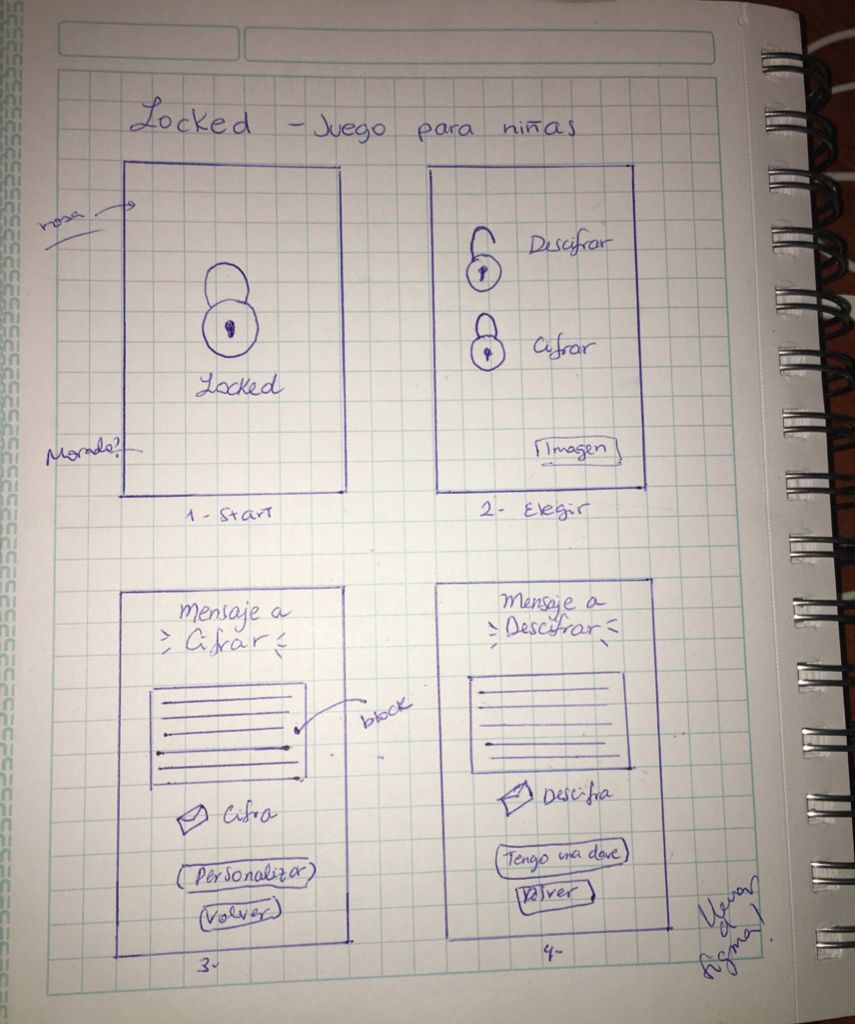 Locked - Juego para niñas
rosa
Locked
Morado?
1- Start
Descifrar
Cifrar
Imagen
2- Elegir
Mensaje a
Cifrar
block
Cifra
Personalizar
Volver
3-
Mensaje a
Descifrar
Descifra
Tengo una clave
Volver
4-
Llevar
a
figma!